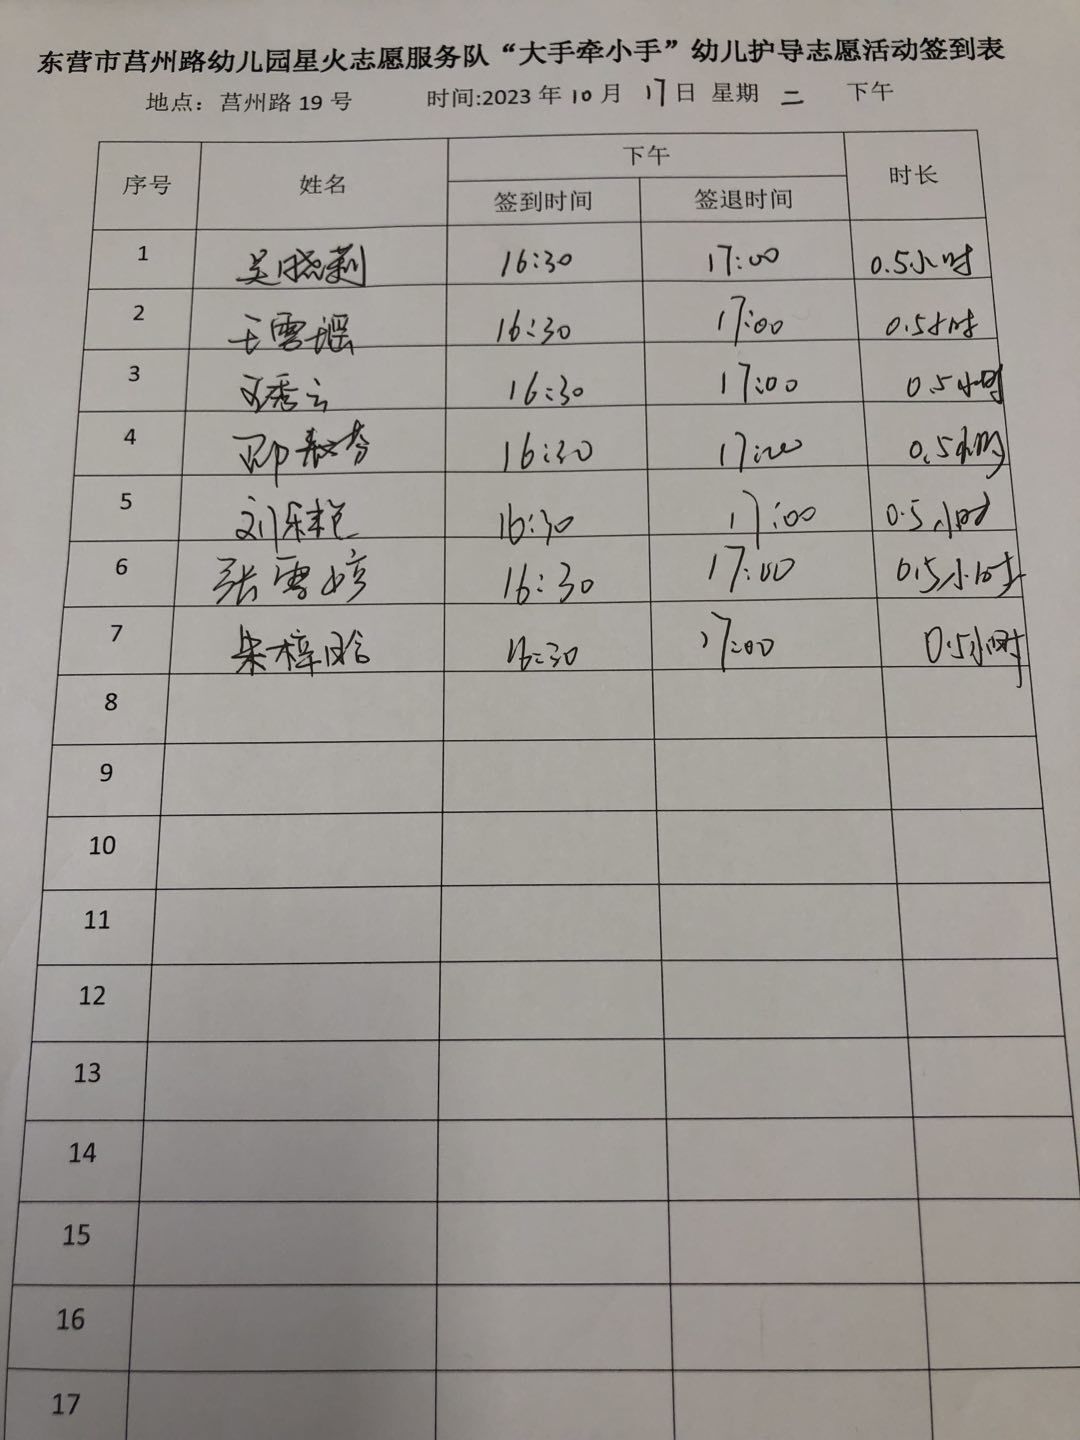 东营市莒州路幼儿园星火志愿服务队“大手牵小手”幼儿护导志愿活动签到表
地点：莒州路 19 号 时间:2023 年 10 月 17 日 星期 二 下午
序号 姓名 下午 时长
签到时间 签退时间
1 吴晓莉 16:30 17:00 0.5小时
2 王雪瑶 16:30 17:00 0.5小时
3 王秀云 16:30 17:00 0.5小时
4 16:30 17:00 0.5小时
5 16:30 17:00 0.5小时
6 张雪婷 16:30 17:00 0.5小时
7 朱梓晗 16:30 17:00 0.5小时
8
9
10
11
12
13
14
15
16
17